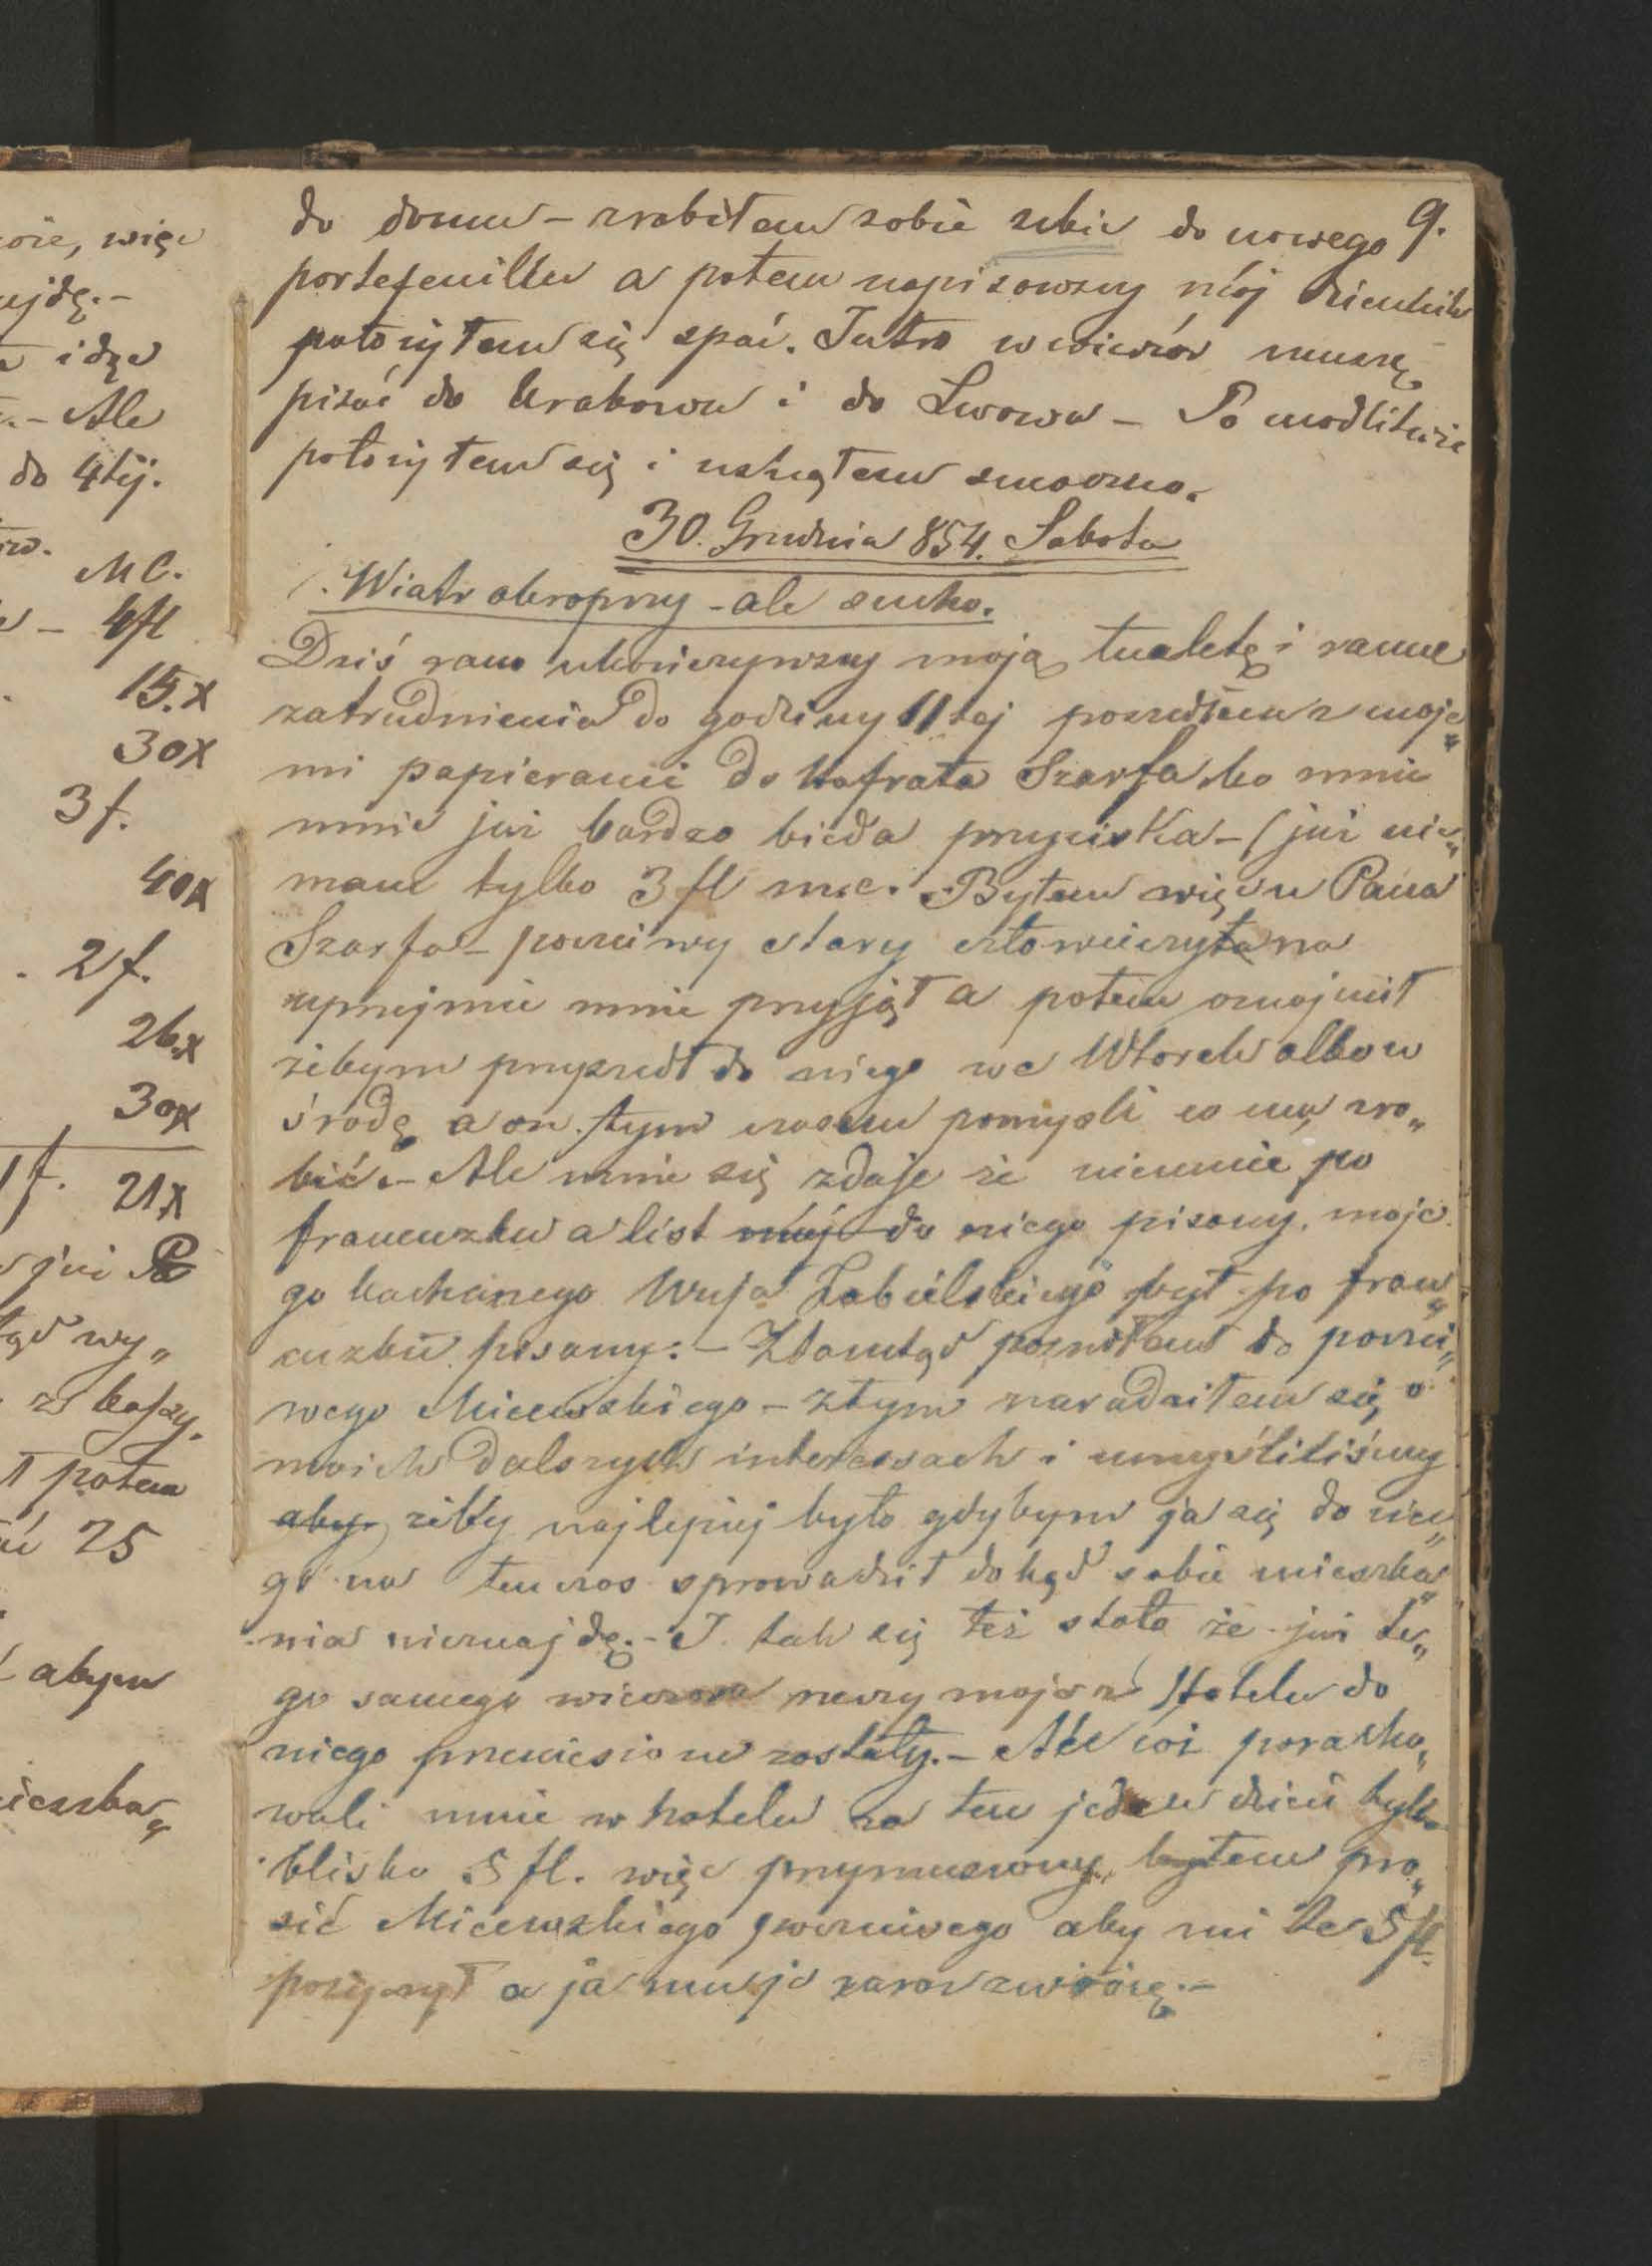 oże, więc
ujdę.-
idę
.- Ale
do 4tej.
MC.
- 4fl
15.x
30x
3f.
40x
. 2f.
26.x
30x
1f. 21x
już
wy„
potem
25
abym
ieszka„
9.
do domu - zrobiłem sobie szkic do nowego
portefeuillu a potem napisawszy mój dziennik
położyłem się spać. Jutro wewieczór muszę
pisać do Krakowa i do Lwowa - Po modlitwie
położyłem się i usnąłem smaczno.
30. Grudnia 854. Sobota
Wiatr okropny - ale sucho.
Dziś rano ukończywszy moją tualetę i ranne
zatrudnienia do godziny 11tej poszedłem z moje„
mi papierami do Hofrata Szarfa, bo mnie
mnie już bardzo bieda przyciska - (już nie„
mam tylko 3 fl mc. - Byłem więc u Pana
Szarfa - poczciwy stary
uprzejmie mnie przyjął a potem oznajmił
żebym przyszedł do niego we Wtorek albo w
środę a on tym czasem pomyśli co ma zro„
bić. - Ale mnie się zdaje że nieumie po
francuzku a list mój do niego pisany, moje
go kochanego Wuja Zabielskiego był po fran„
cuzku pisany. - Ztamtąd poszedłem do poczci„
wego Micewskiego - ztym naradziłem się o
moich dalszych interessach i umyśliliśmy
aby żeby najlepiej było gdybym ja się do nie„
go na ten czas sprowadził dokąd sobie mieszka„
nia nieznajdę. - I tak się też stało że już te„
go samego wieczora rzeczy moje z Hotelu do
niego przeniesione zostały. - Ale cóż poracho„
wali mnie w hotelu za ten jeden dzień tylko
blisko 5 fl. więc przymuszony byłem pro„
sić Micewskiego poczciwego aby mi te 5 fl.
pożyczył a ja mu je zaraz zwrócę. -